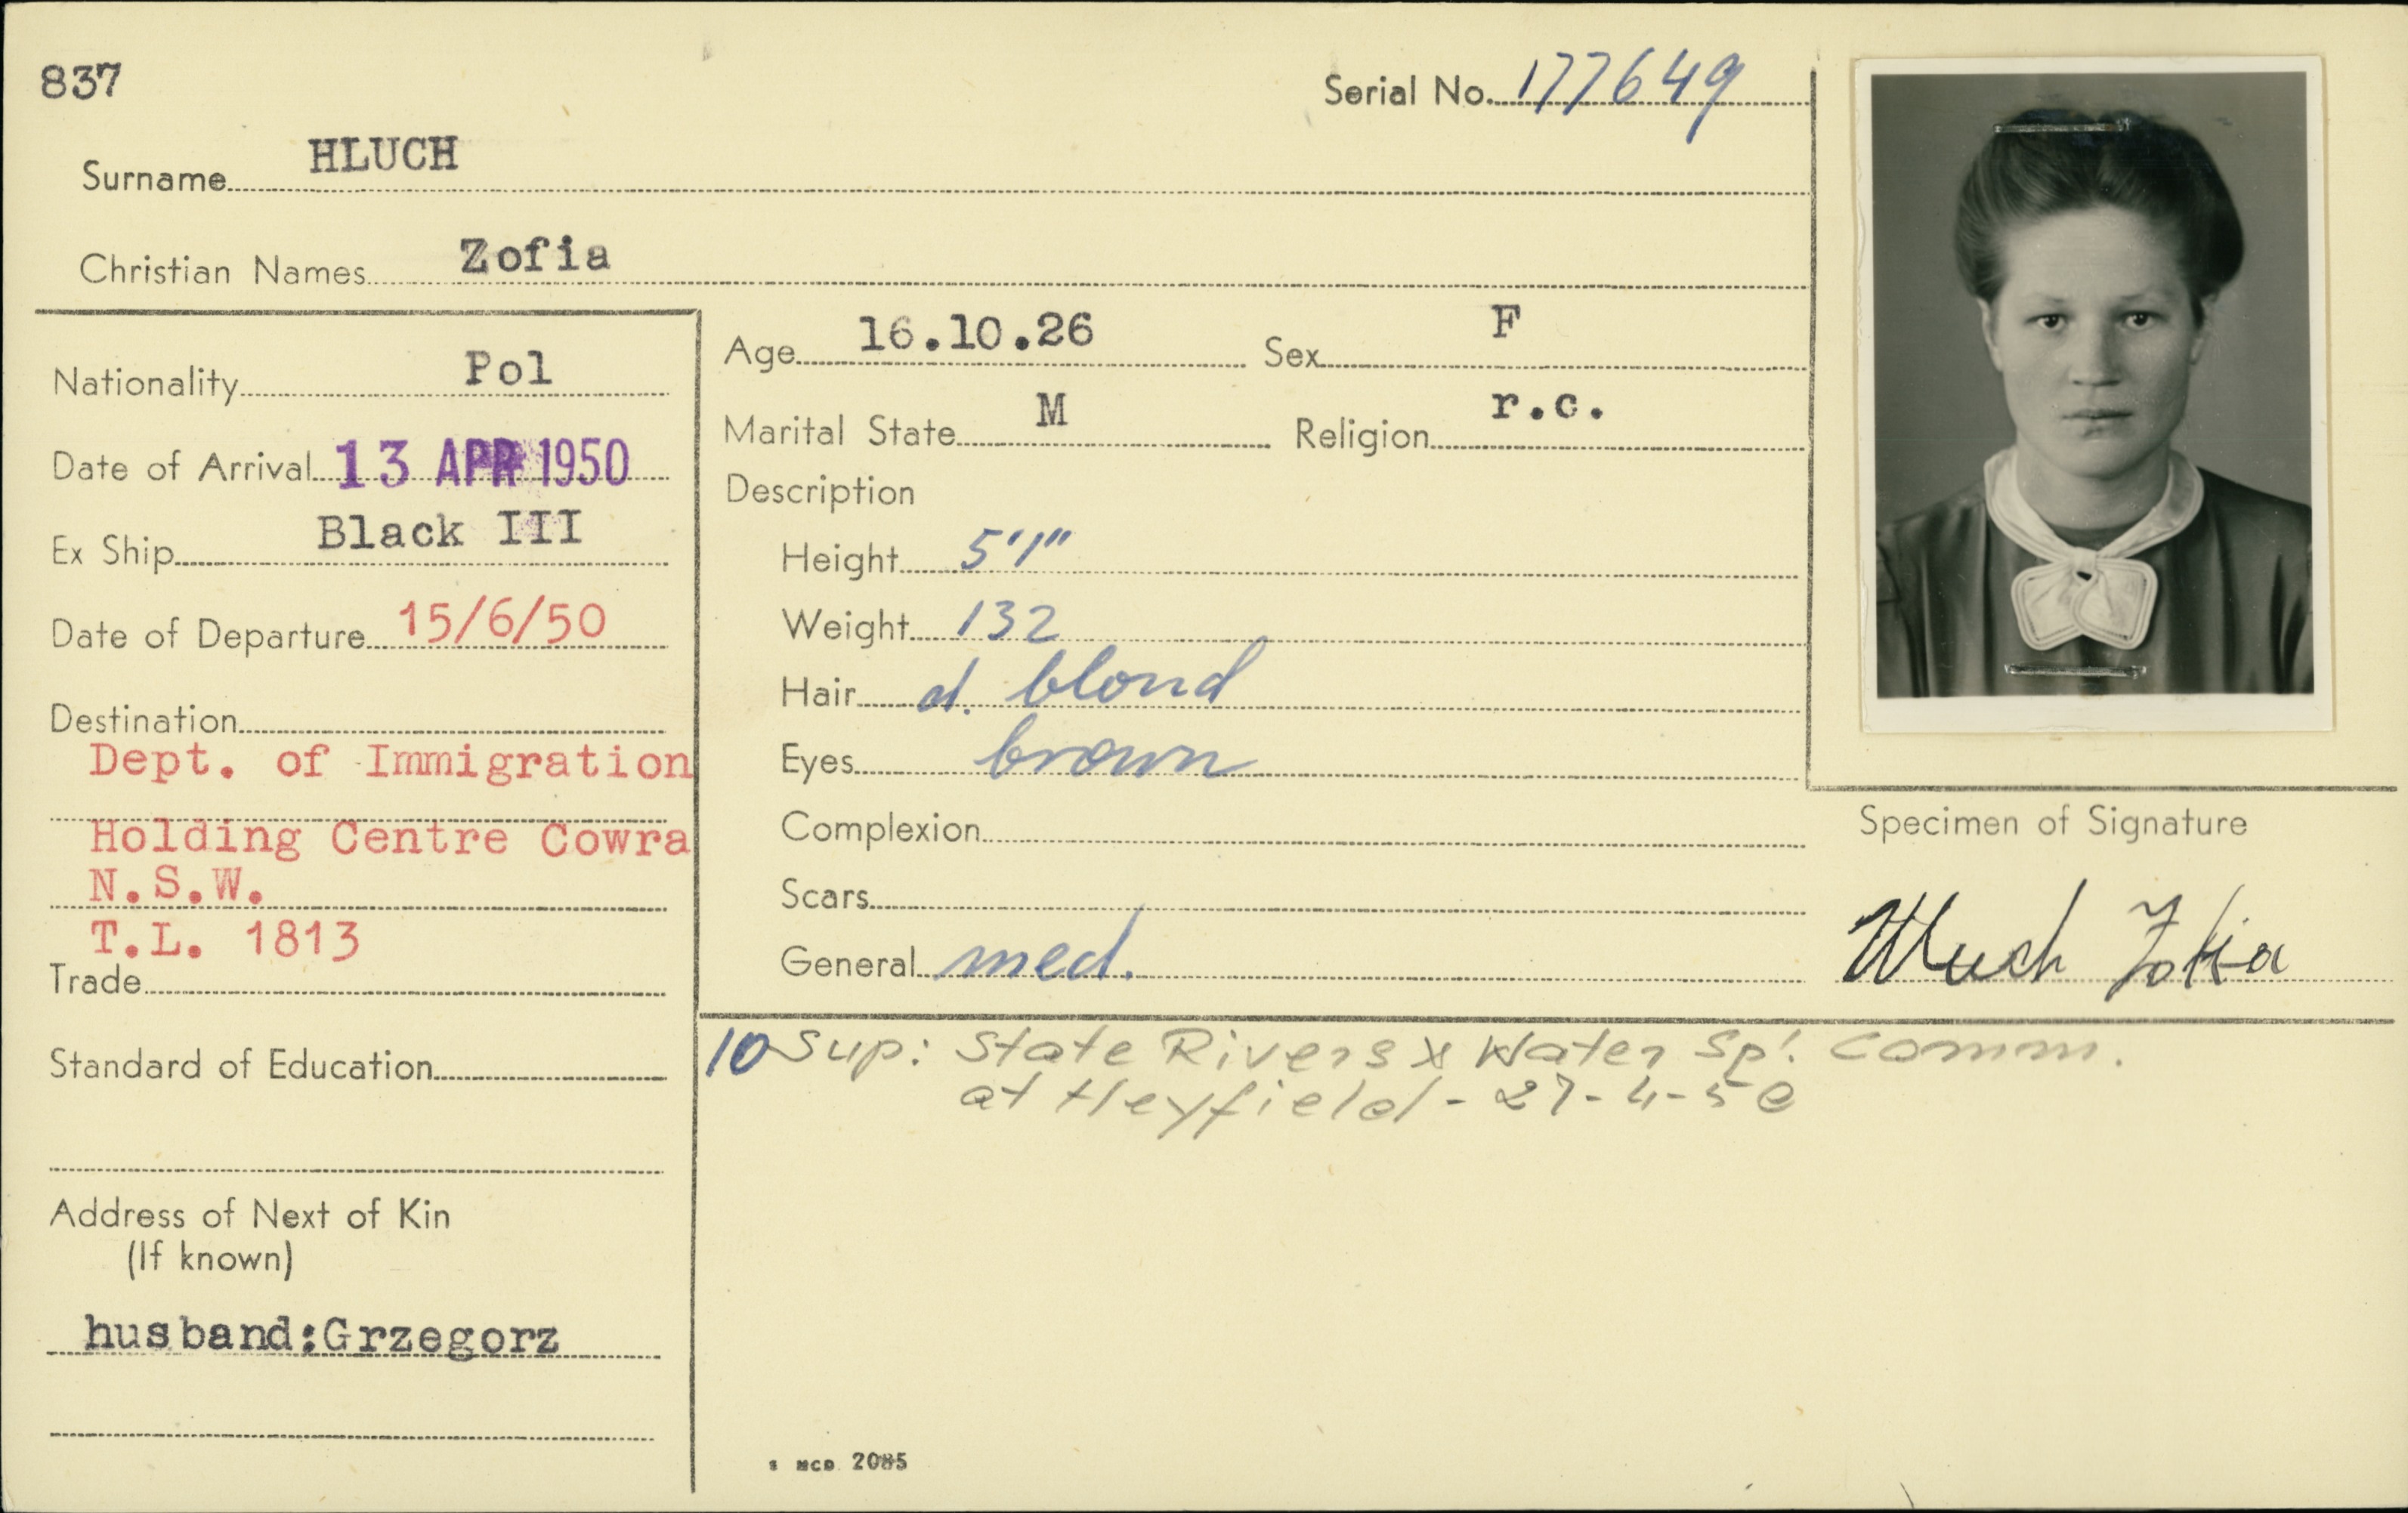 837
Serial No. 177649
Surname HLUCH
Christian Names Zofia
Nationality Pol
Date of Arrival 13 APR 1950
Ex Ship Black III
Date of Departure 15/6/50
Destination
Dept. of Immigration
Holding Centre Cowra
N.S.W.
T.L. 1813
Trade
Standard of Education
Address of Next of Kin
(If known)
husband:Grzegorz
Age 16.10.26 Sex F
Marital State M Religion r.c.
Description
Height 5'1"
Weight 132
Hair d. blond
Eyes brown
Complexion
Scars
General med.
Specimen of Signature
Hluch Zofia
10 Sup: State Rivers & Water Sp! Comm.
at Heyfield - 27-4-50
MCD 2085